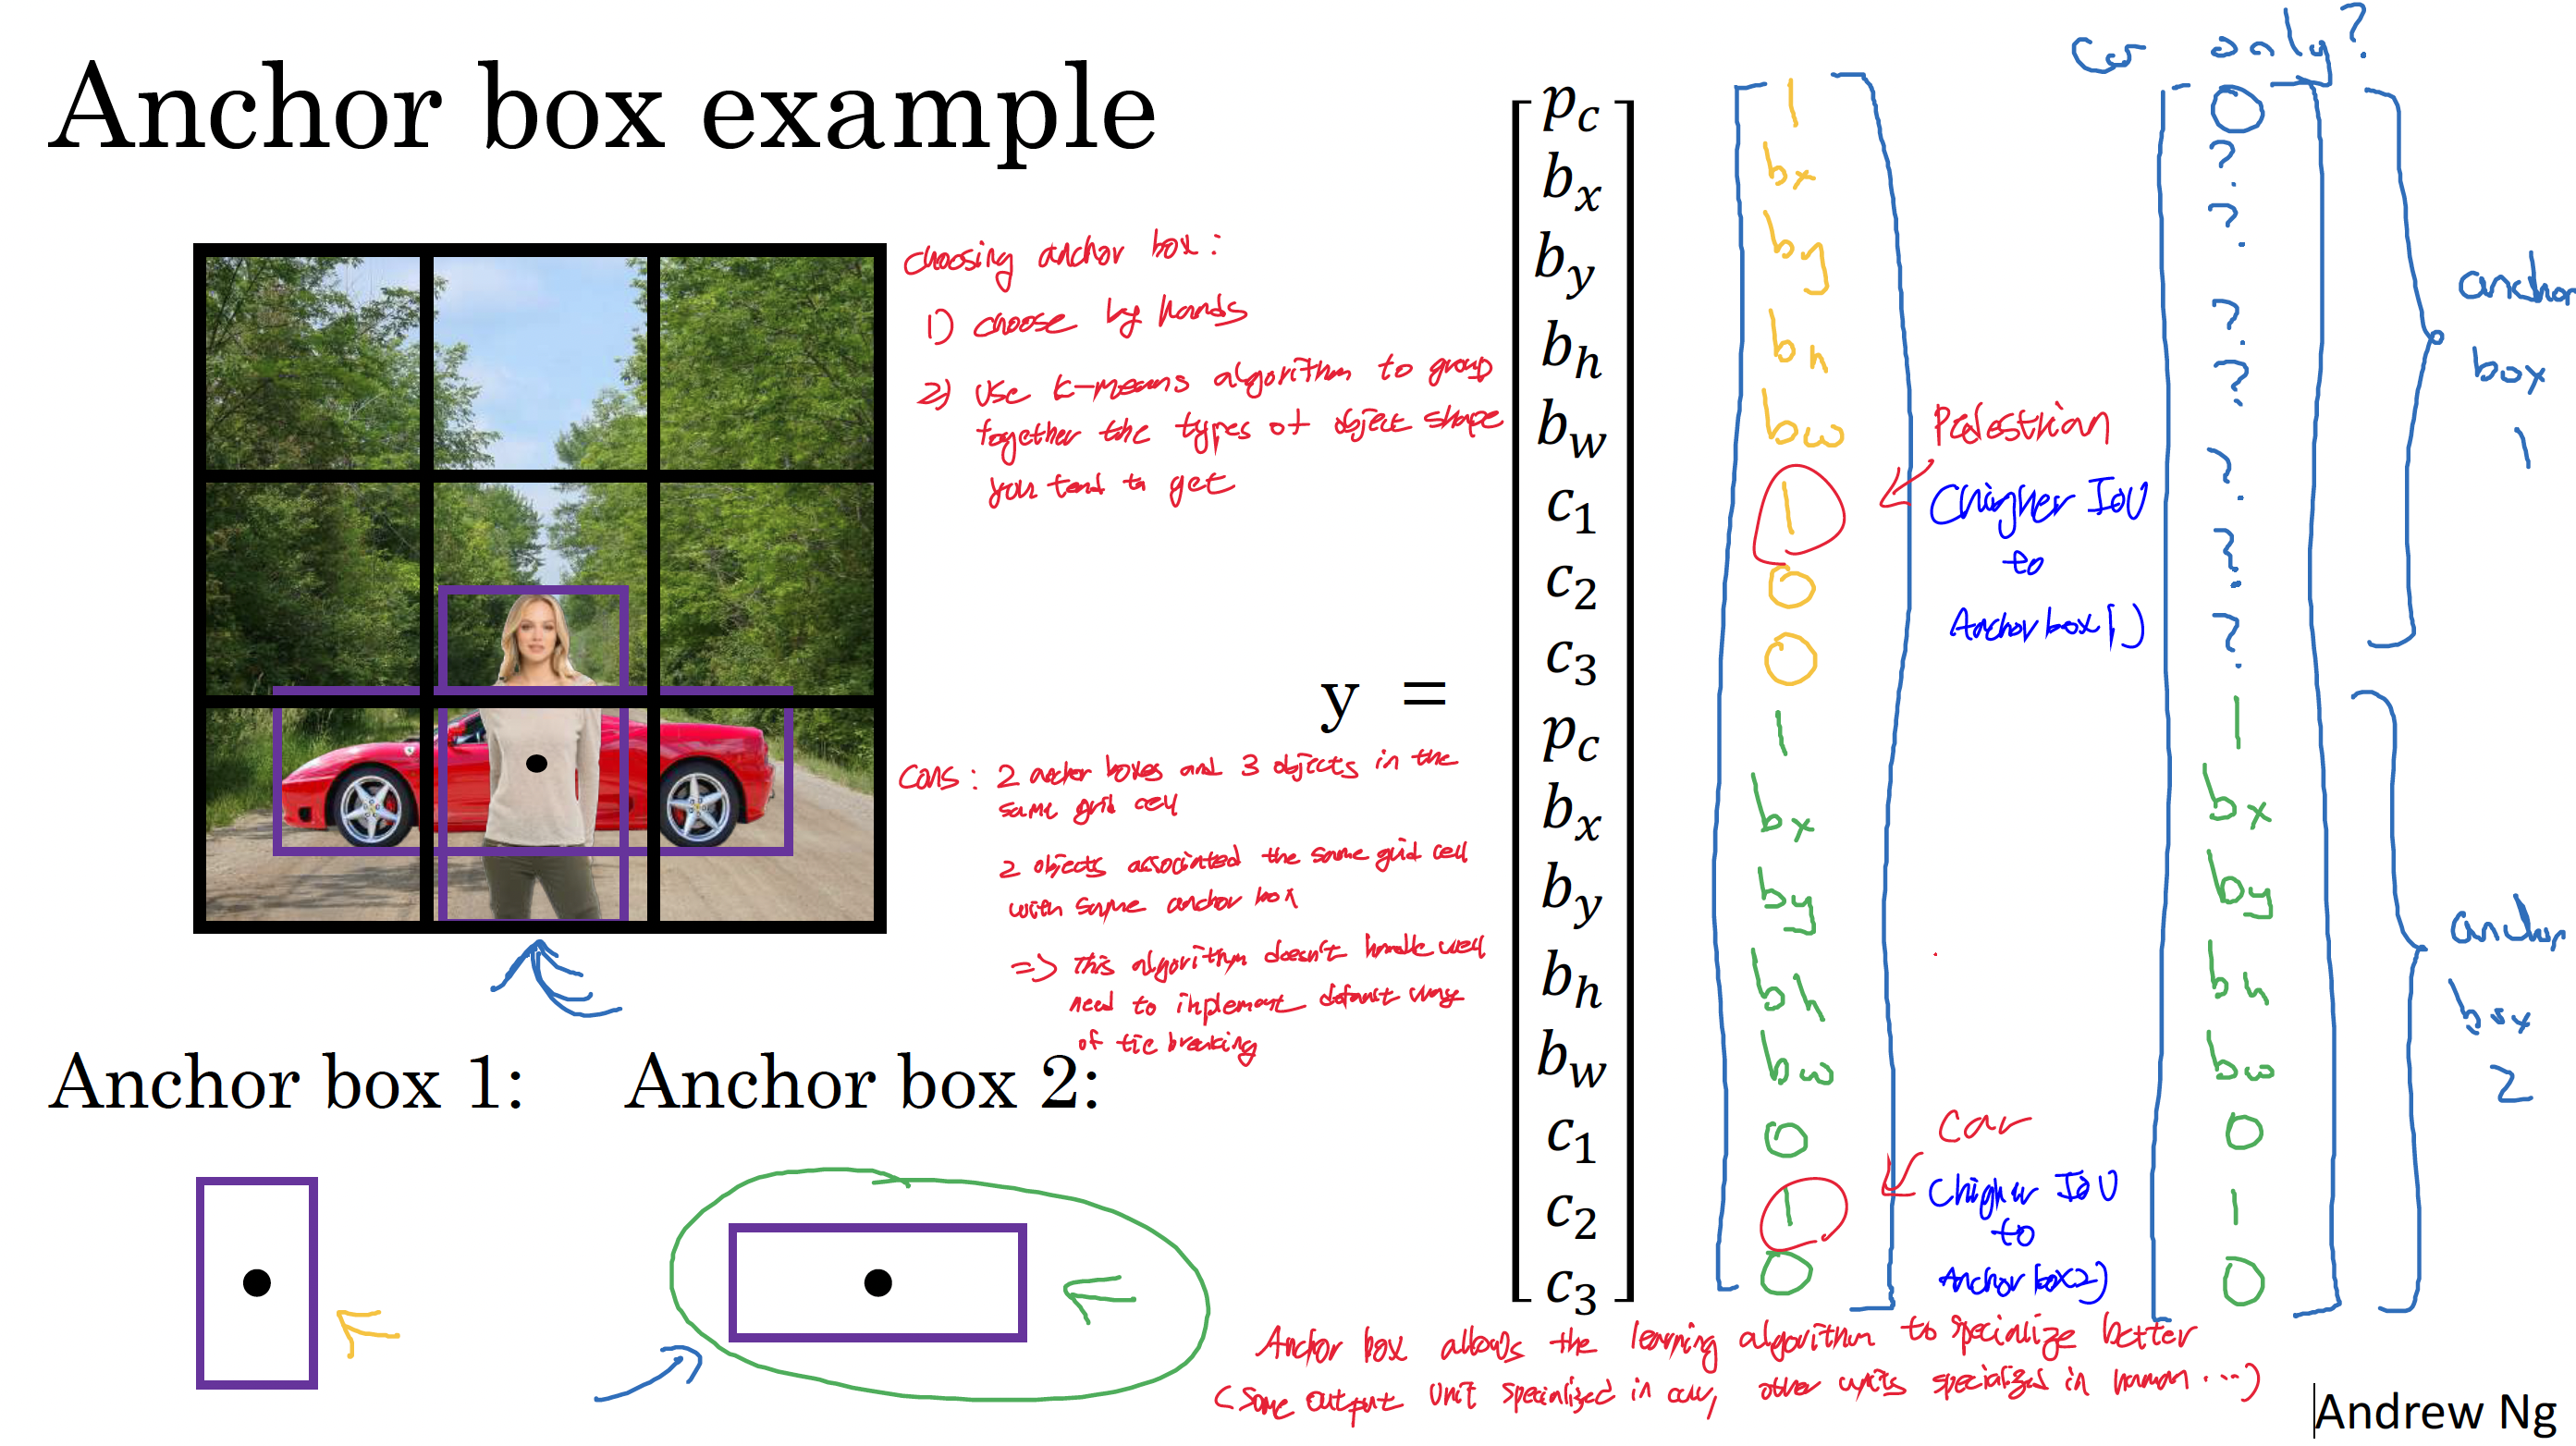 Anchor box example
choosing anchor box :
1) choose by hands
2) Use k-means algorithm to group
together the types of object shape
you tend to get
cons : 2 anchor boxes and 3 objects in the
same grid cell
2 objects associated the same grid cell
with same anchor box
=> this algorithm doesn't handle well
need to implement default way
of tie breaking
Anchor box 1:
Anchor box 2:
y =
p_c
b_x
b_y
b_h
b_w
c_1
c_2
c_3
p_c
b_x
b_y
b_h
b_w
c_1
c_2
c_3
1
bx
by
bh
bw
1
0
0
1
bx
by
bh
bw
0
1
0
Pedestrian
(higher IoU
to
Anchor box 1)
car
(higher IoU
to
Anchor box 2)
Car only?
0
?
?
?
?
?
?
?
1
bx
by
bh
bw
0
1
0
anchor
box
1
anchor
box
2
Anchor box allows the learning algorithm to specialize better
(Some output unit specialized in car, other units specialized in human ...)
Andrew Ng